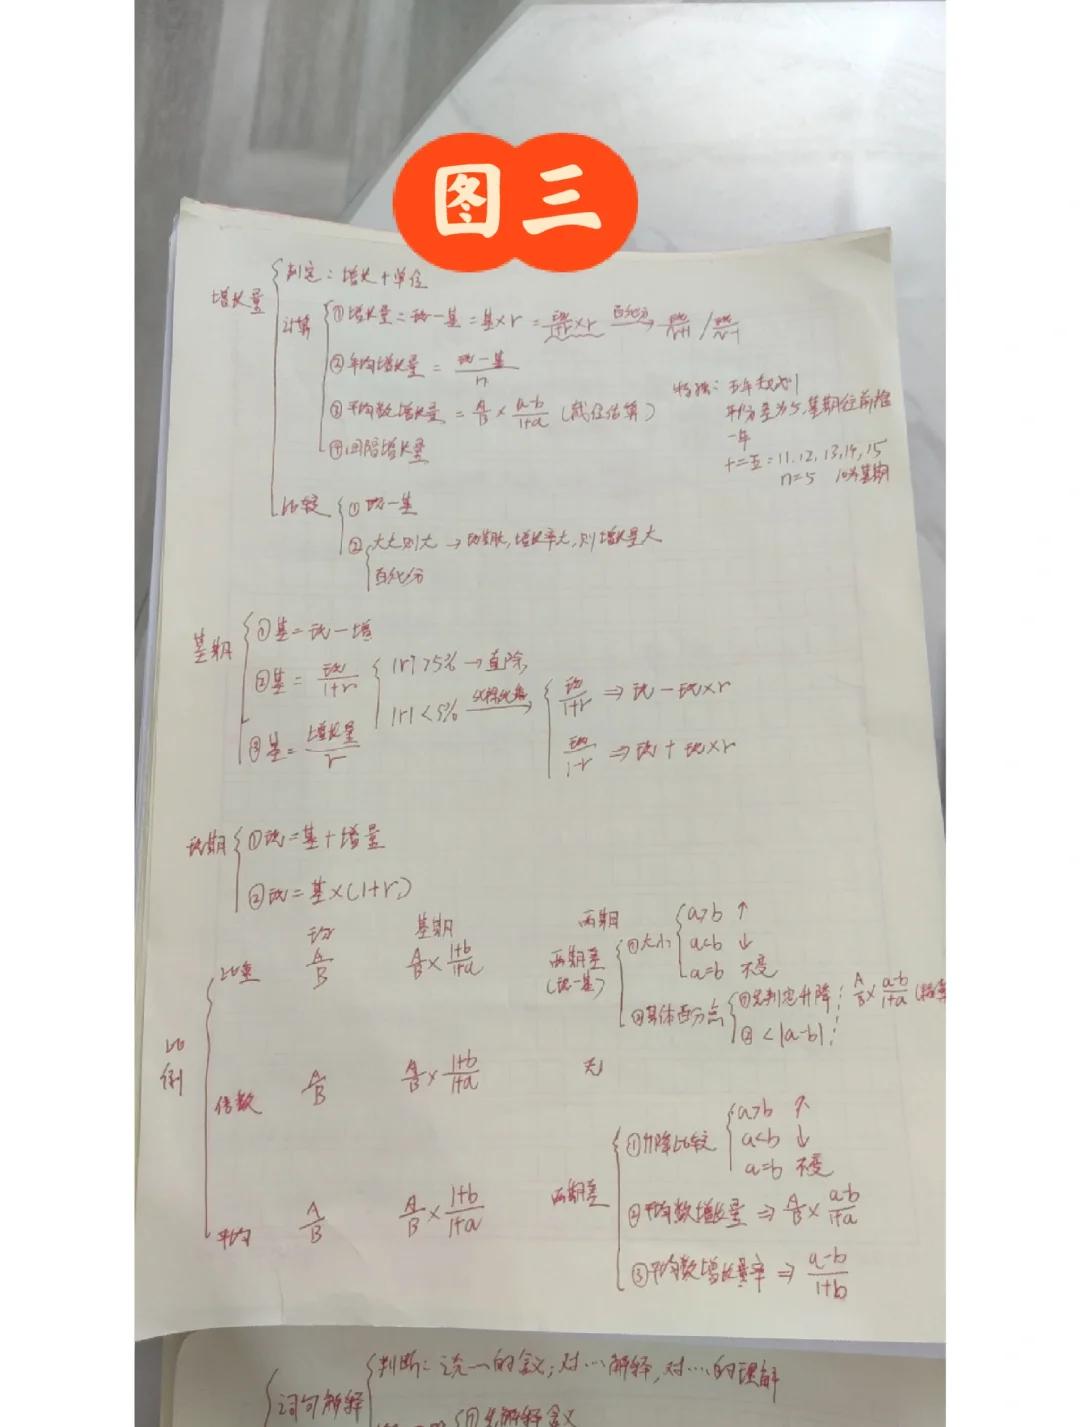 图三
增长量
判定：增长+单位
计算
①增长量=现-基=基×r=现/1+r×r 百化分→ 现/n+1 / 现/n-1
②年均增长量=现-基/n
③平均数增长量=A/B×a-b/1+a（截位估算）
④间隔增长量
特殊：五年规划
年份差为5,基期往前推
一年
十二五=11.12,13,14,15
n=5 10为基期
比较
①现-基
②大大则大→现期大,增长率大,则增长量大
百化分
基期
①基=现-增
②基=现/1+r
|r|>5%→直除
|r|<5%
现/1+r⇒现-现×r
现/1-r⇒现+现×r
③基=增长量/r
现期
①现=基+增量
②现=基×(1+r)
现 基期 两期
比例
比重 A/B A/B×1+b/1+a
两期差
(现-基)
①大小
a>b ↑
a<b ↓
a=b 不变
②具体百分点
①先判定升降；A/B×a-b/1+a
②<|a-b|；
倍数 A/B A/B×1+b/1+a 无
平均 A/B A/B×1+b/1+a 两期差
①升降比较
a>b ↑
a<b ↓
a=b 不变
②平均数增长量⇒A/B×a-b/1+a
③平均数增长量率⇒a-b/1+b
词句解释
判断：这一的含义；对…解释,对…的理解
①先解释含义